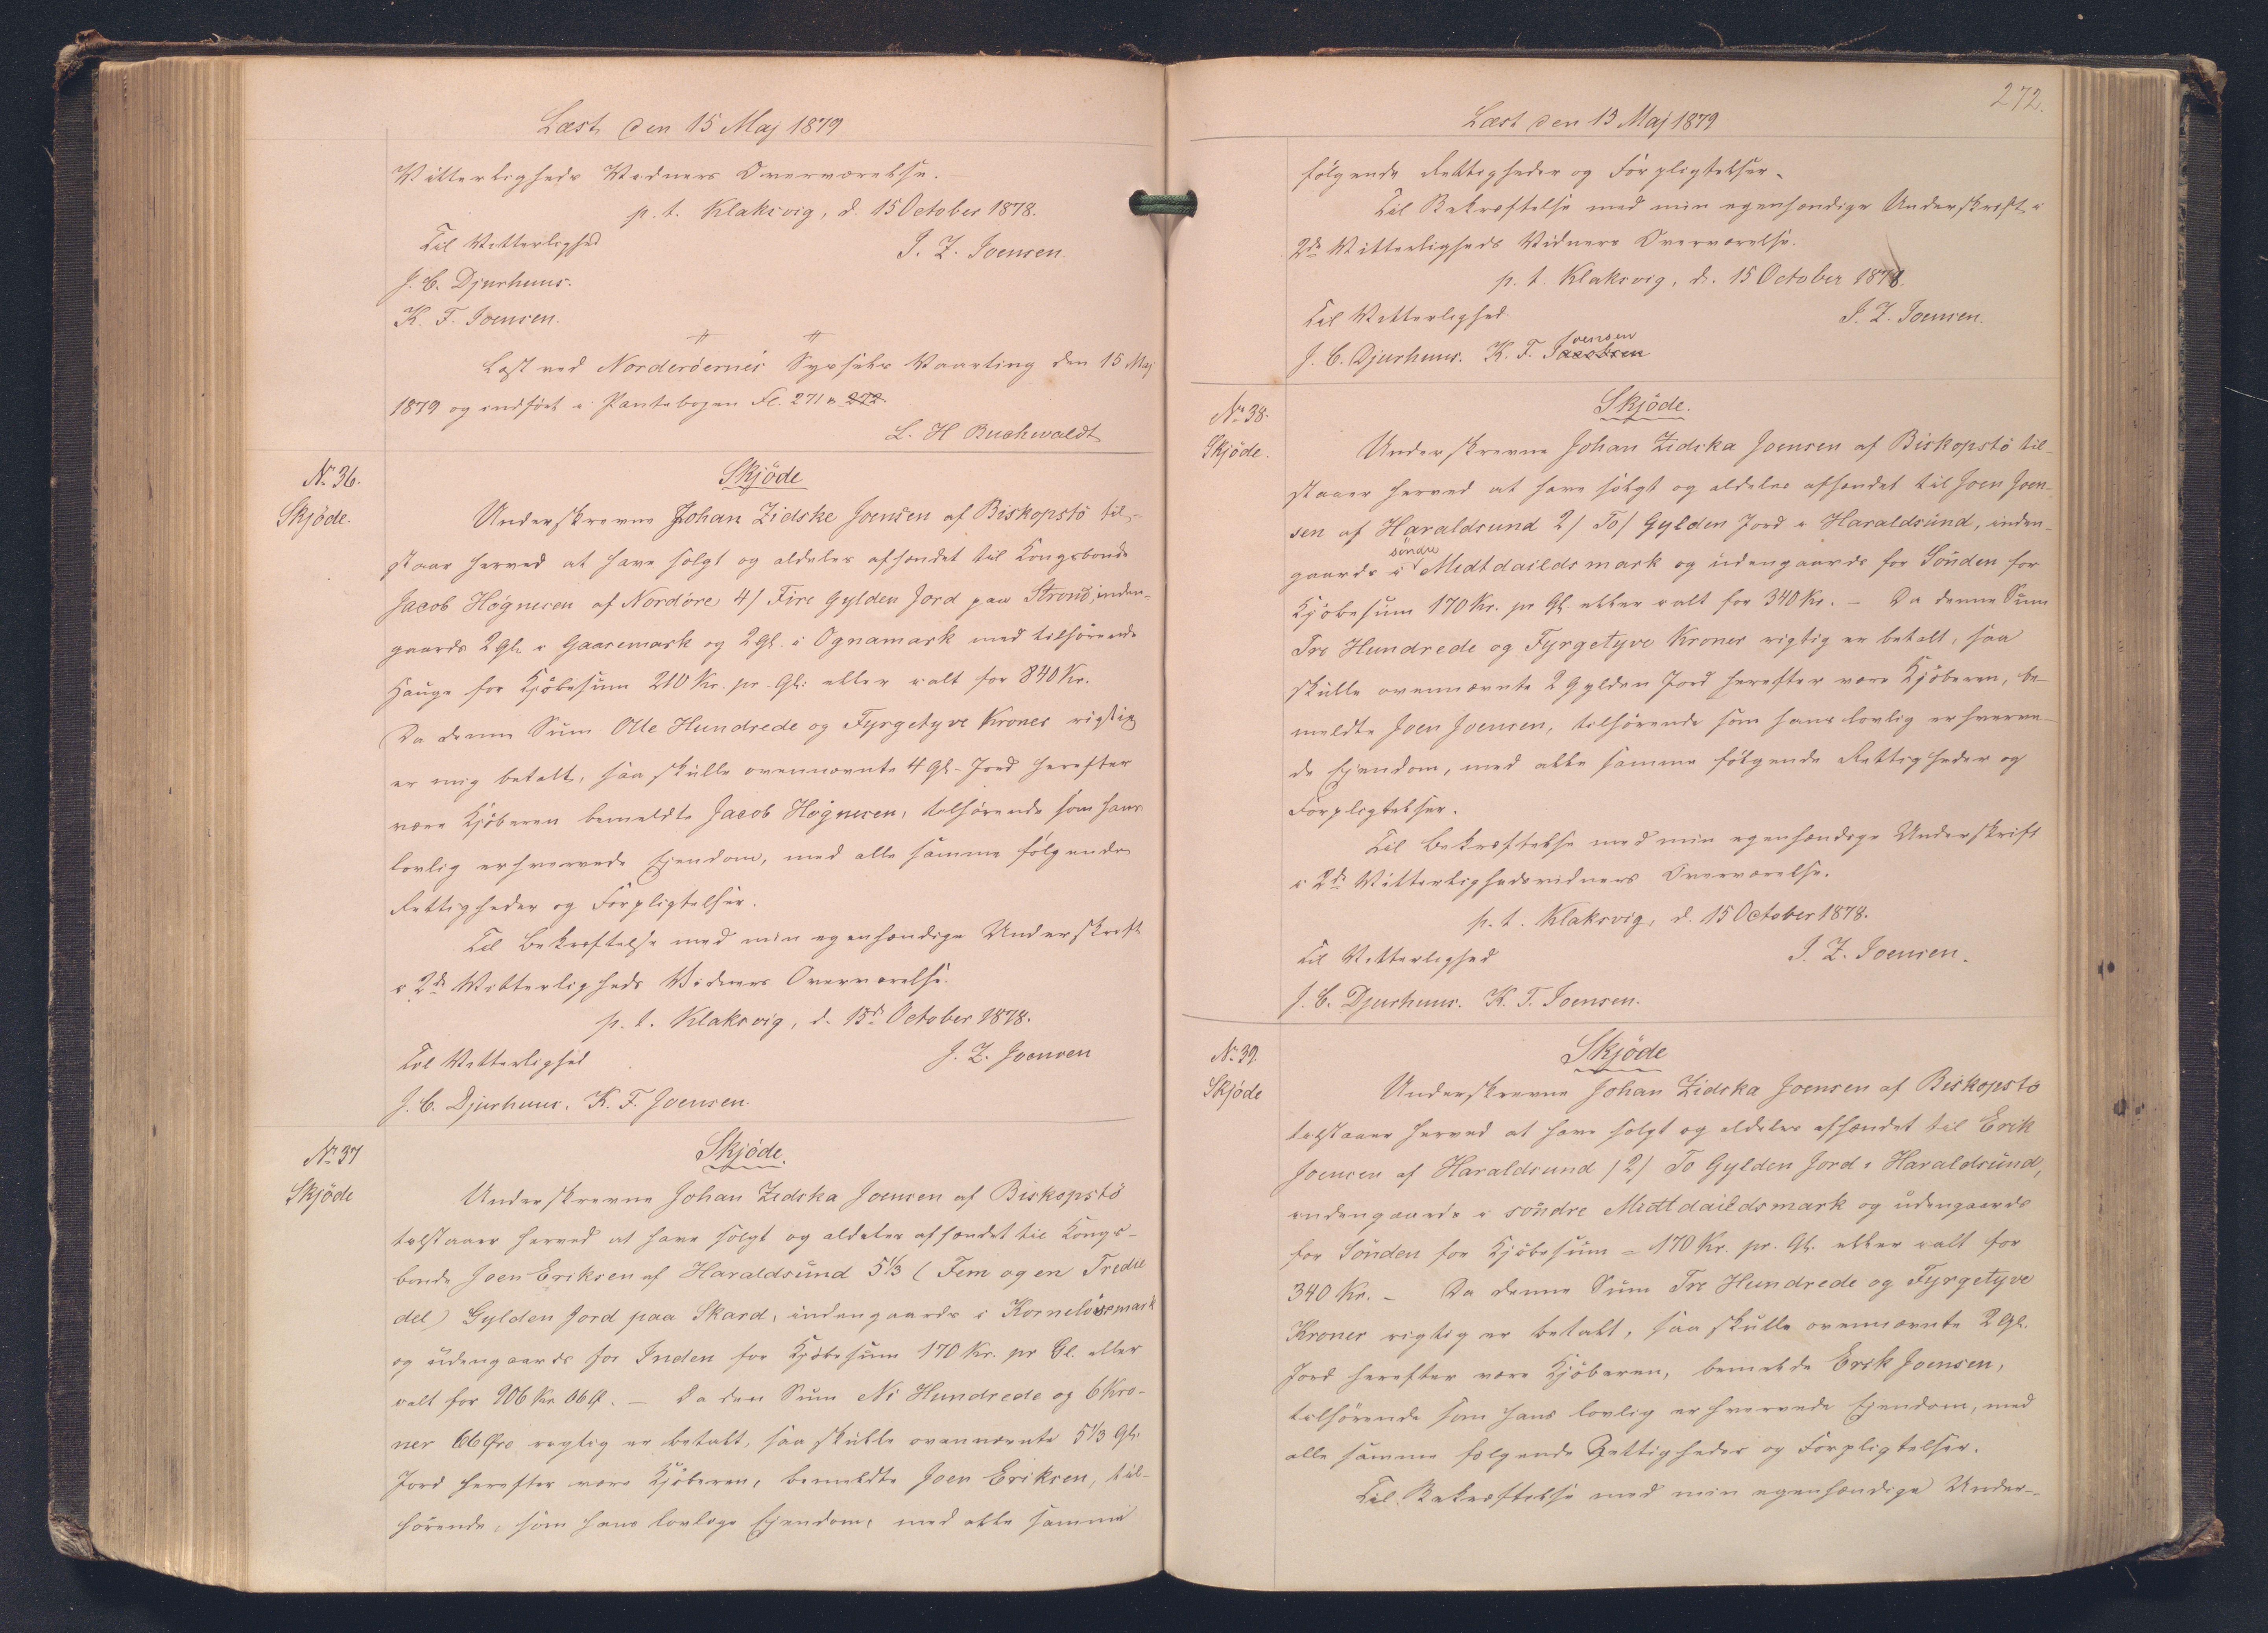 Læst den 15 Maj 1879
Vitterligheds Vidners Overværelse.
p. t. Klaksvig, d. 15 October 1878.
Til Vitterlighed
J. Z. Joensen.
J. C. Djurhuus.
K. F. Joensen.
Læst ved Norderöernes Syssels Vaarting den 15 Maj
1879 og indført i Pantebogen Fl. 271 & 272.
L. H Buchwaldt
No 36.
Skjöde.
Skjöde
Underskrevne Johan Zidske Joensen af Biskopstö til-
staar herved at have solgt og aldeles afhændet til Kongsbonde
Jacob Högnesen af Nordöre 4/ Fire Gylden Jord paa Strond, inden-
gaards 2 Gl. i Gaaremark og 2 Gl. i Ognamark med tilhörende
Hauge for Kjöbesum 210 Kr. pr. Gl. eller ialt for 840 Kr.
Da denne Sum Otte Hundrede og Fyrgetyve Kroner rigtig
er mig betalt, saa skulle ovennævnte 4 Gl. Jord herefter
være Kjöberen bemeldte Jacob Högnesen, tilhörende som hans
lovlig erhvervede Ejendom, med alle samme fölgende
Rettigheder og Forpligtelser.
Til Bekræftelse med min egenhændige Underskrift
i 2de Vitterligheds Vidners Overværelse.
p. t. Klaksvig, d. 15de October 1878.
Til Vitterlighed
J. Z. Joensen
J. C. Djurhuus. K. F. Joensen.
No 37
Skjöde
Skjöde.
Underskrevne Johan Zidska Joensen af Biskopstö
tilstaaer herved at have solgt og aldeles afhændet til Kongs-
bonde Joen Eriksen af Haraldsund 5 1/3 ( Fem og en Tredie
del) Gylden Jord paa Skard, indengaards i Kornelösemark
og udengaards for Inden for Kjöbesum 170 Kr. pr Gl. eller
ialt for 906 Kr. 66 Ø. - Da den Sum Ni Hundrede og 6 Kro-
ner 66 Øre rigtig er betalt, saa skulle ovennævnte 5 1/3 Gl.
Jord herefter være Kjöberen, bemeldte Joen Eriksen, til-
hörende, som hans lovlige Ejendom, med alle samme
272.
Læst den 15 Maj 1879
fölgende Rettigheder og Forpligtelser.
Til Bekræftelse med min egenhændige Underskrift i
2de Vitterligheds Vidners Overværelse.
p. t. Klaksvig, d. 15 October 1878.
Til Vitterlighed
J. Z. Joensen.
Joensen
J. C. Djurhuus. K. F. Jacobsen
No 38.
Skjöde.
Skjöde.
Underskrevne Johan Zidska Joensen af Biskopstö til-
staaer herved at have solgt og aldeles afhændet til Joen Joen-
sen af Haraldsund 2/ To/ Gylden Jord i Haraldsund, inden-
söndre
gaards i Midtdaildsmark og udengaards for Sönden for
Kjöbesum 170 Kr. pr Gl. eller ialt for 340 Kr. - Da denne Sum
Tre Hundrede og Fyrgetyve Kroner rigtig er betalt, saa
skulle ovennævnte 2 Gylden Jord herefter være Kjöberen, be-
meldte Joen Joensen, tilhörende som hans lovlig erhverve-
de Ejendom, med alle samme fölgende Rettigheder og
Forpligtelser.
Til Bekræftelse med min egenhændige Underskrift
i 2de Vitterlighedsvidners Overværelse.
p. t. Klaksvig, d. 15 October 1878.
Til Vitterlighed
J. Z. Joensen.
J. C. Djurhuus. K. F. Joensen.
No 39.
Skjöde
Skjöde
Underskrevne Johan Zidska Joensen af Biskopstö
tilstaaer herved at have solgt og aldeles afhændet til Erik
Joensen af Haraldsund /2/ To Gylden Jord i Haraldsund,
indengaards i söndre Midtdaildsmark og udengaards
for Sönden for Kjöbesum = 170 Kr. pr. Gl. eller ialt for
340 Kr. - Da denne Sum Tre Hundrede og Fyrgetyve
Kroner rigtig er betalt, saa skulle ovennævnte 2 Gl.
Jord herefter være Kjöberen, bemeldte Erik Joensen,
tilhörende som hans lovlig erhvervede Ejendom, med
alle samme fölgende Rettigheder og Forpligtelser.
Til Bekræftelse med min egenhændige Under-